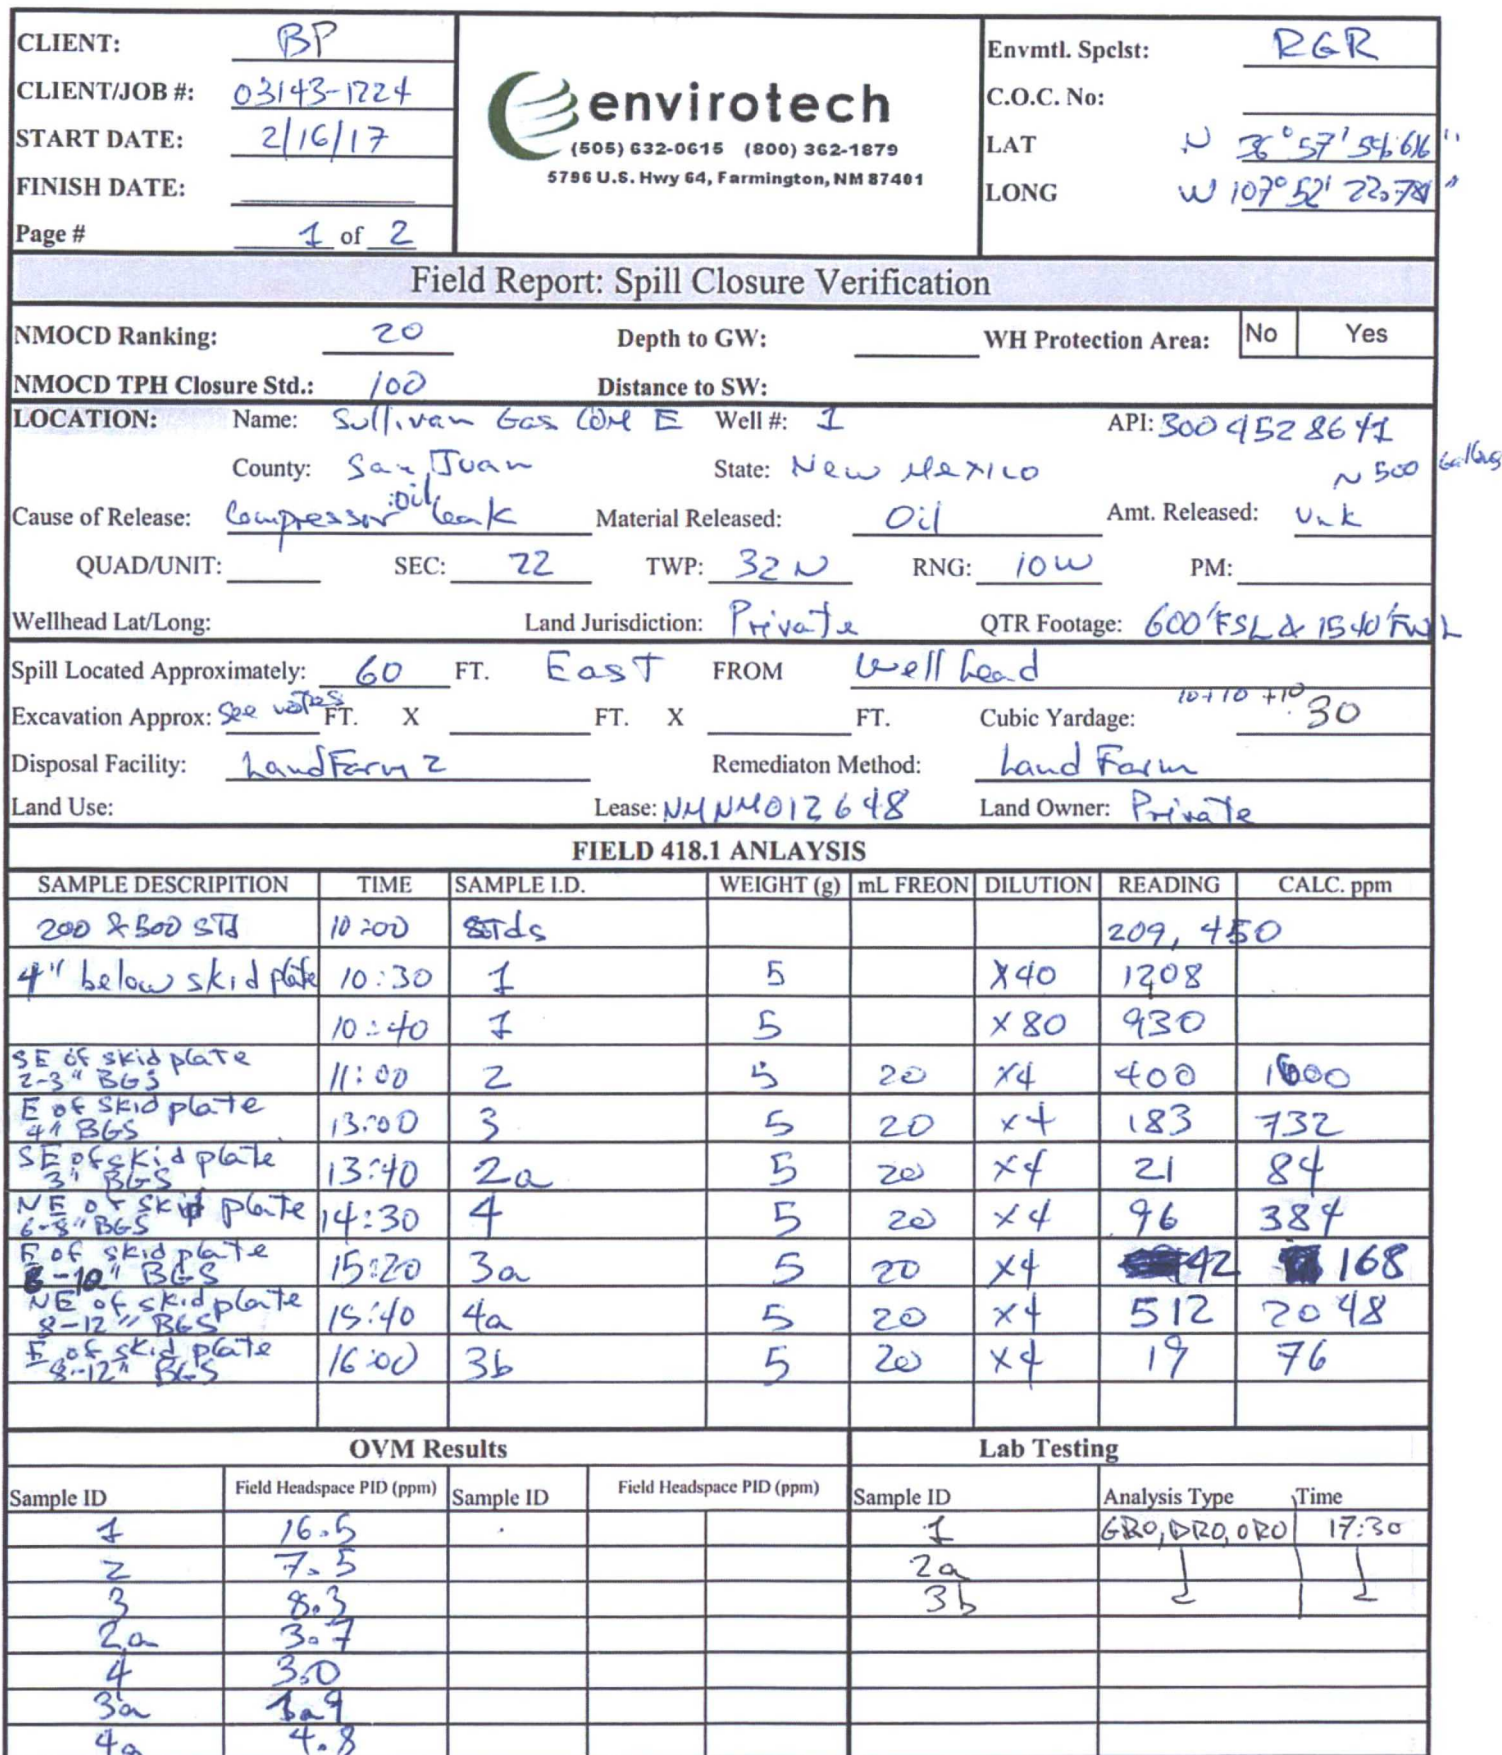 CLIENT: BP
CLIENT/JOB #: 03143-1224
START DATE: 2/16/17
FINISH DATE:
Page # 1 of 2
envirotech
(505) 632-0615 (800) 362-1879
5796 U.S. Hwy 64, Farmington, NM 87401
Envmtl. Spclst: RGR
C.O.C. No:
LAT N 36° 57'
LONG W 107° 52' 22.781"
Field Report: Spill Closure Verification
NMOCD Ranking: 20 Depth to GW: WH Protection Area: No Yes
NMOCD TPH Closure Std.: 100 Distance to SW:
LOCATION: Name: Sullivan Gas COM E Well #: 1 API: 3004528641
County: San Juan State: New Mexico ~ 500 Gallons
Cause of Release: Compressor oil leak Material Released: Oil Amt. Released: Unk
QUAD/UNIT: SEC: 22 TWP: 32N RNG: 10W PM:
Wellhead Lat/Long: Land Jurisdiction: Private QTR Footage: 600'FSL & 1540'FWL
Spill Located Approximately: 60 FT. East FROM Well head
Excavation Approx: See notes FT. X FT. X FT. Cubic Yardage: 10+10+10 30
Disposal Facility: LandFarm 2 Remediaton Method: Land Farm
Land Use: Lease: NMNM012648 Land Owner: Private
FIELD 418.1 ANLAYSIS
SAMPLE DESCRIPITION TIME SAMPLE I.D. WEIGHT (g) mL FREON DILUTION READING CALC. ppm
200 & 500 STd 10:00 STds 209, 450
4" below skid plate 10:30 1 5 X40 1208
10:40 1 5 X80 930
SE of skid plate 2-3" BGS 11:00 2 5 20 X4 400 1600
E of skid plate 4" BGS 13:00 3 5 20 X4 183 732
SE of skid plate 3" BGS 13:40 2a 5 20 X4 21 84
NE of skid plate 6-8" BGS 14:30 4 5 20 X4 96 384
E of skid plate 8-10" BGS 15:20 3a 5 20 X4 42 168
NE of skid plate 8-12" BGS 15:40 4a 5 20 X4 512 2048
E of skid plate 8-12" BGS 16:00 3b 5 20 X4 19 76
OVM Results Lab Testing
Sample ID Field Headspace PID (ppm) Sample ID Field Headspace PID (ppm) Sample ID Analysis Type Time
1 16.5 1 GRO, DRO, ORO 17:30
2 7.5 2a
3 8.3 3b
2a 3.7
4 3.0
3a 1.9
4a 4.8